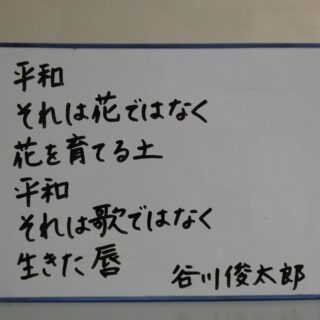 平和
それは花ではなく
花を育てる土
平和
それは歌ではなく
生きた唇
谷川俊太郎